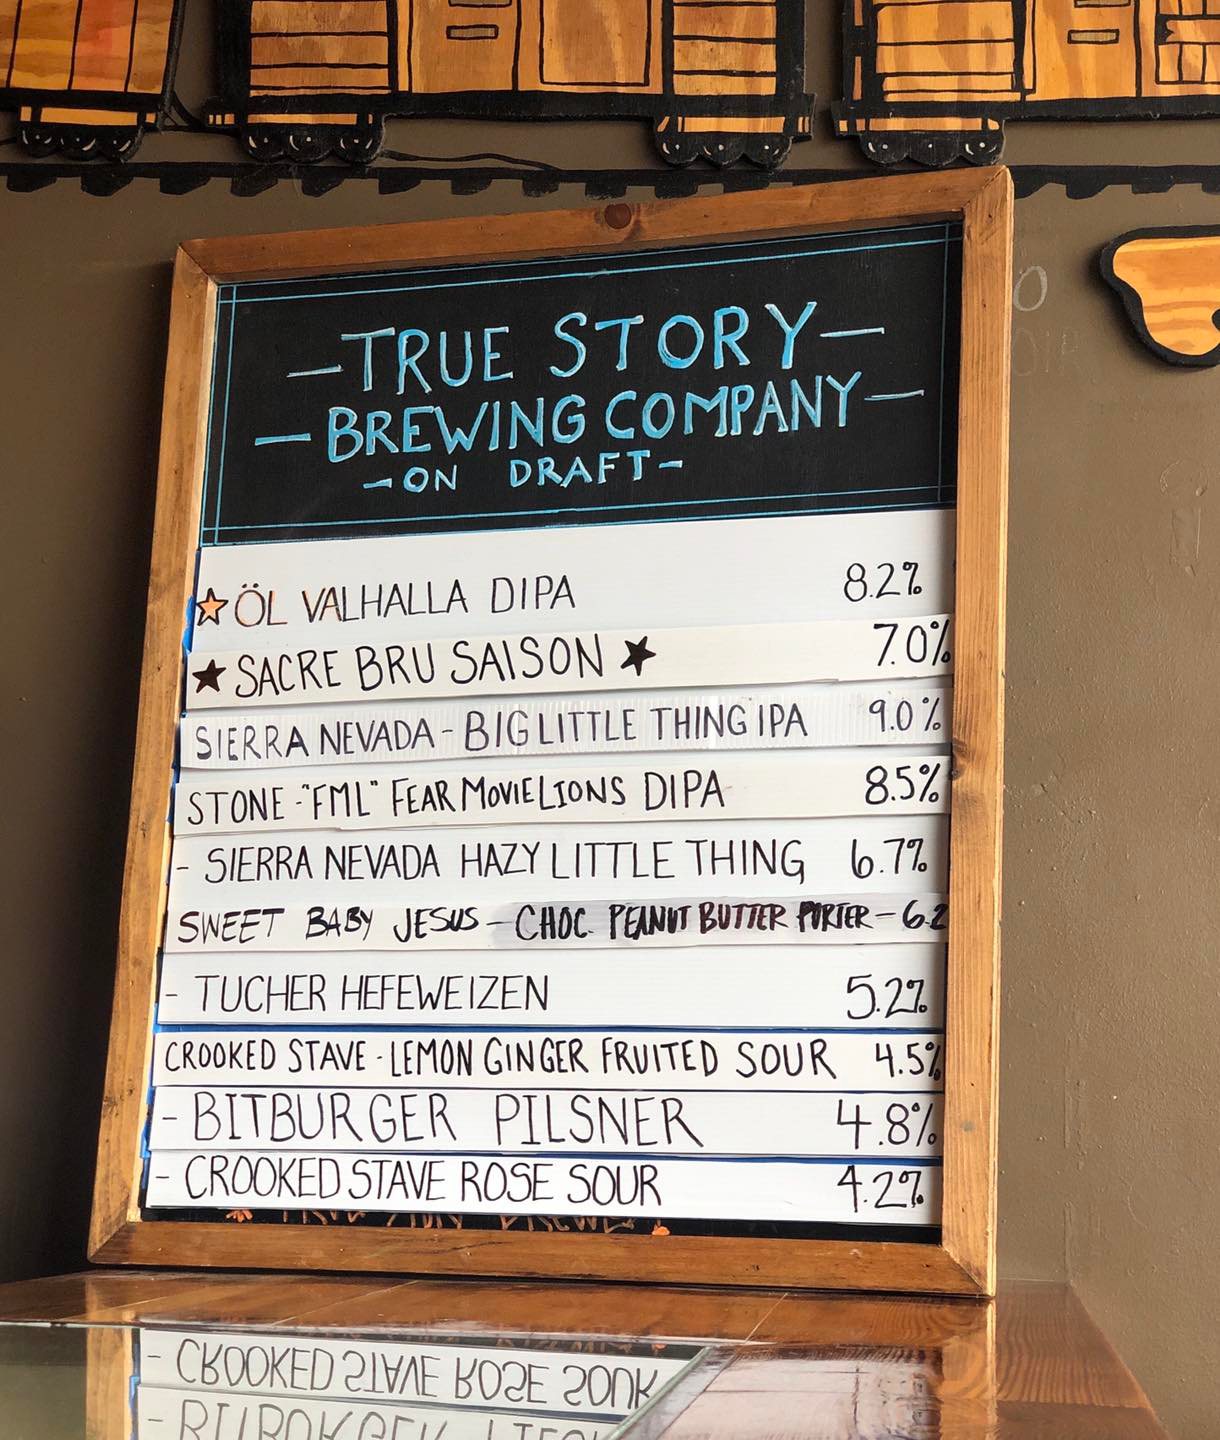 —TRUE STORY—
—BREWING COMPANY—
-ON DRAFT-
☆ ÖL VALHALLA DIPA 8.2%
★ SACRE BRU SAISON ★ 7.0%
SIERRA NEVADA - BIG LITTLE THING IPA 9.0%
STONE - "FML" FEAR MOVIE LIONS DIPA 8.5%
- SIERRA NEVADA HAZY LITTLE THING 6.7%
SWEET BABY JESUS - CHOC. PEANUT BUTTER PORTER - 6.2
- TUCHER HEFEWEIZEN 5.2%
CROOKED STAVE - LEMON GINGER FRUITED SOUR 4.5%
- BITBURGER PILSNER 4.8%
- CROOKED STAVE ROSE SOUR 4.2%